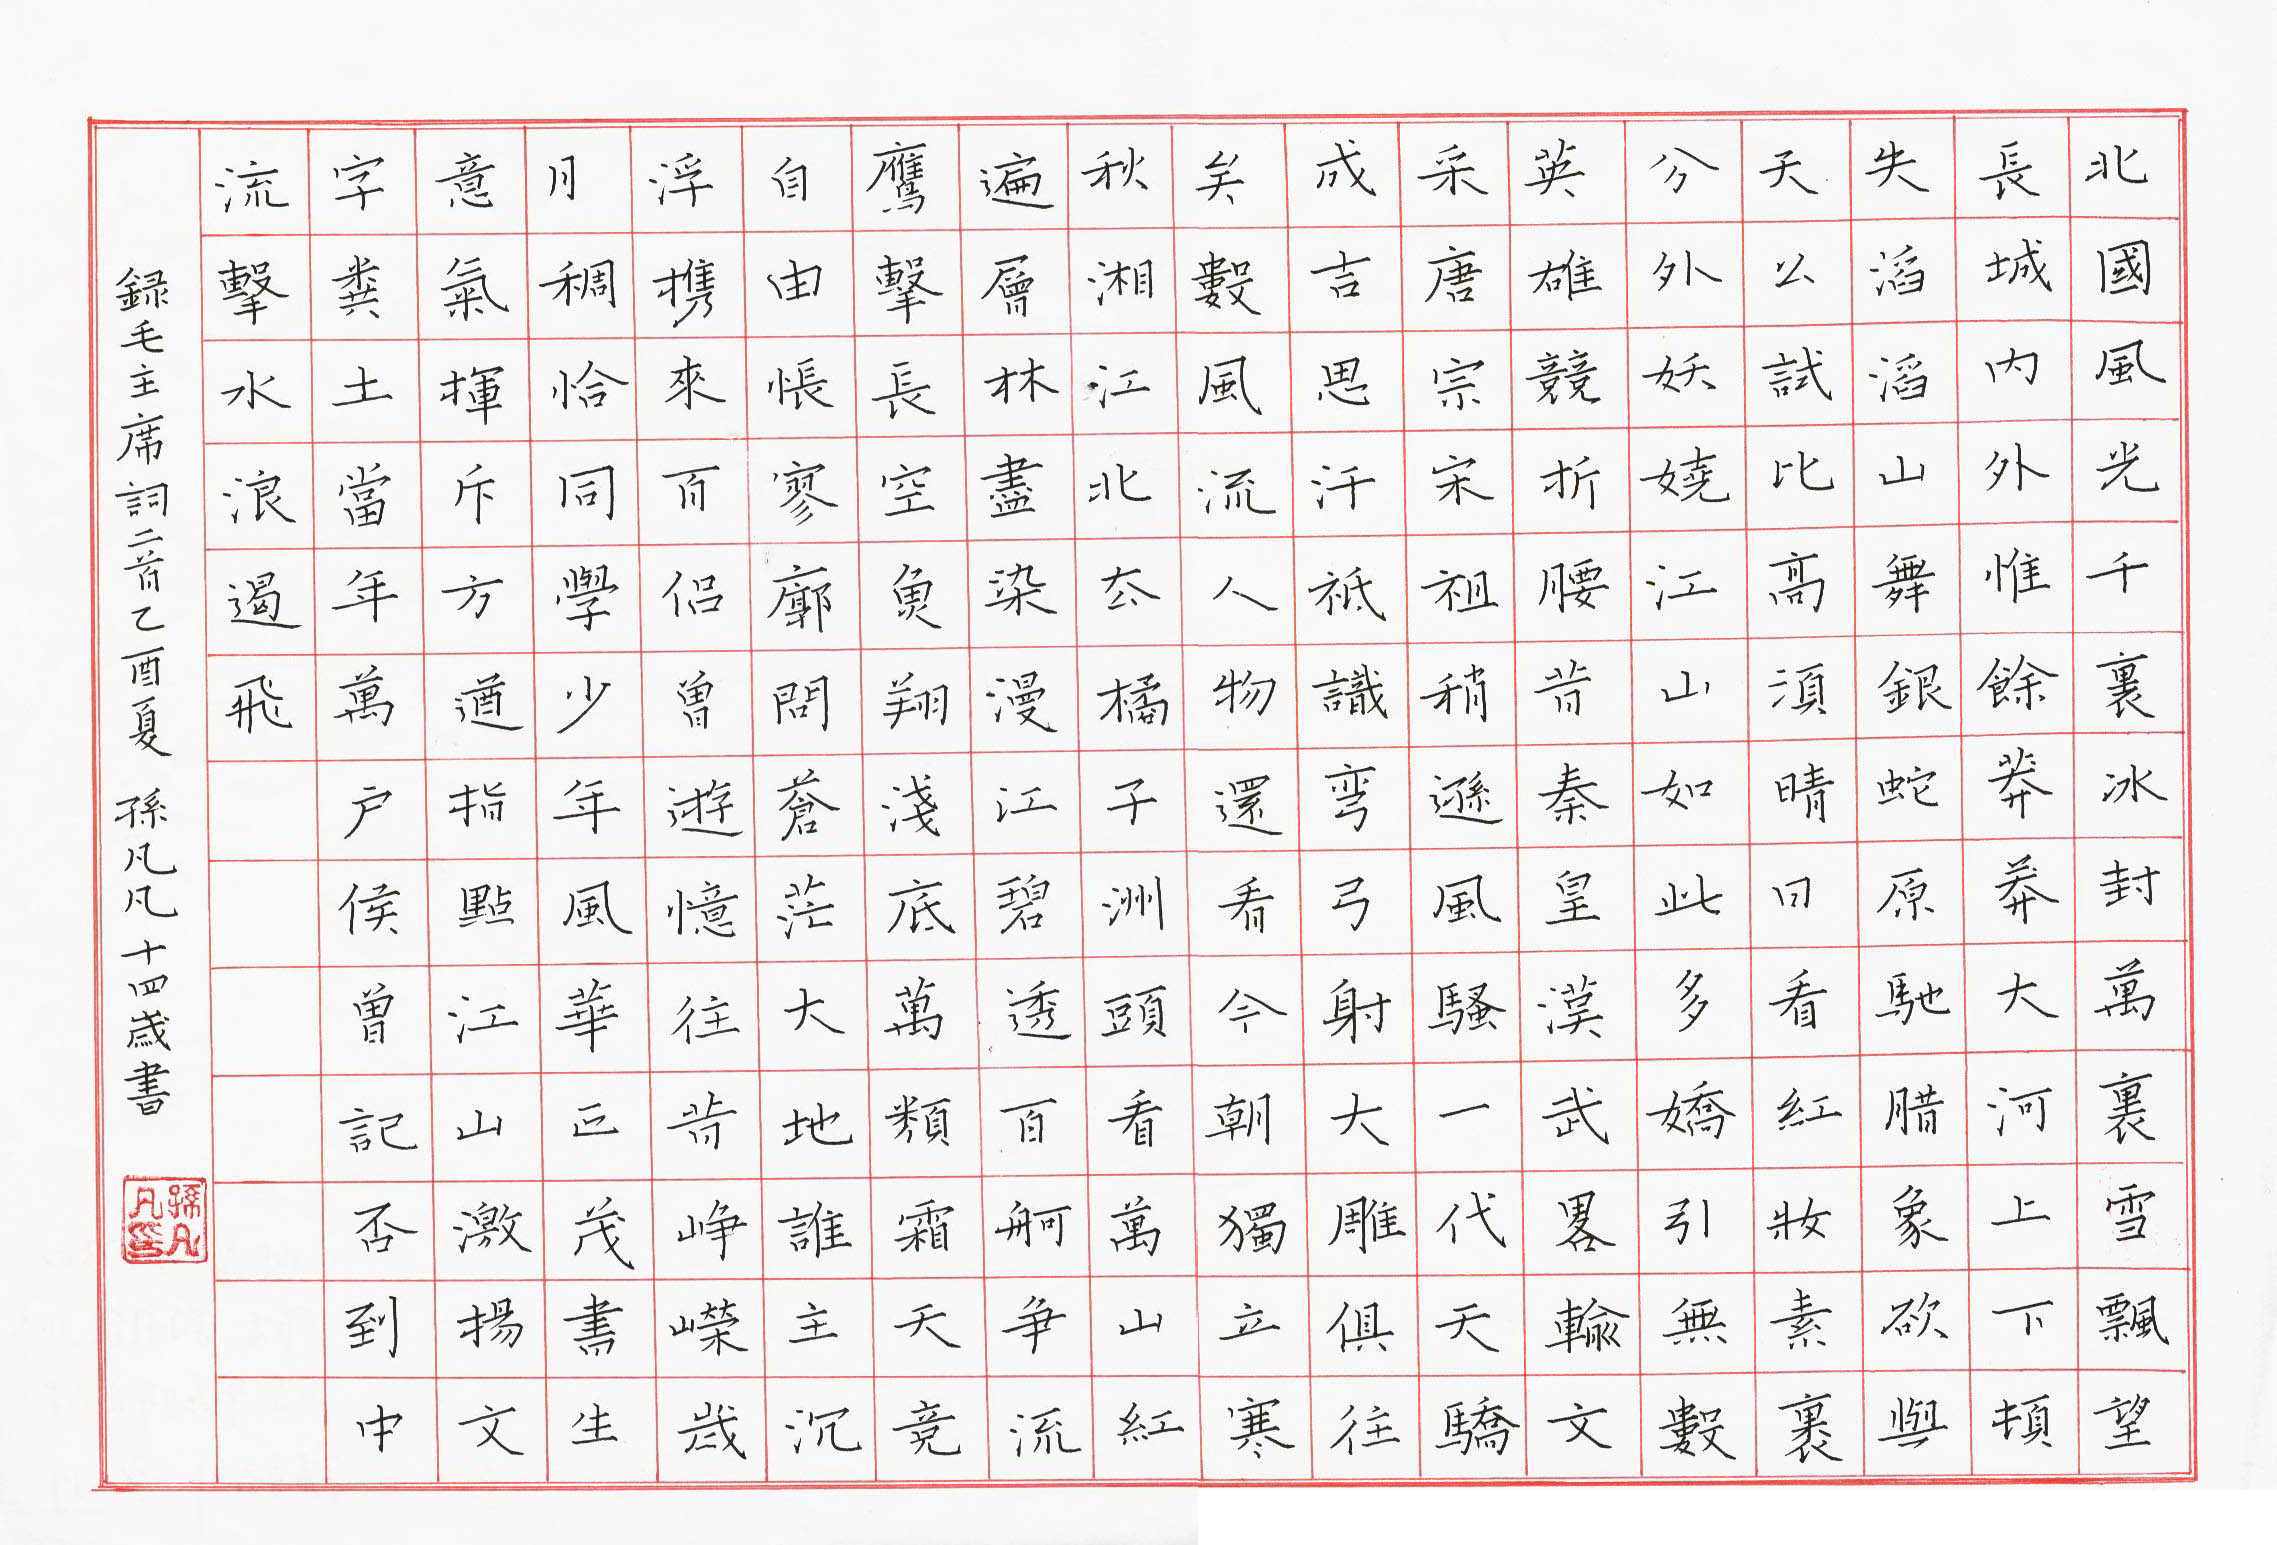 北國風光千裏冰封萬裏雪飄望
長城內外惟餘莽莽大河上下頓
失滔滔山舞銀蛇原馳腊象欲與
天公試比高須晴日紅妝素裹
分外妖嬈江山如此多嬌引無數
英雄競折腰昔秦皇漢武畧輸文
采唐宗宋祖稍遜風騷一代天驕
成吉思汗祇識彎弓射大雕俱往
矣數風流人物還看今朝獨立寒
秋湘江北去橘子洲頭看萬山紅
遍層林盡染漫江碧透百舸爭流
鷹擊長空魚翔淺底萬類霜天竞
自由悵寥廓問蒼茫大地誰主沉
浮攜來百侶曾遊憶往昔崢嶸歲
月稠恰同學少年風華正茂書生
意氣揮斥方遒指點江山激揚文
字糞土當年萬戶侯曾記否到中
流擊水浪遏飛
録毛主席詞二首乙酉夏 孫凡凡十四歲書
孫凡凡印